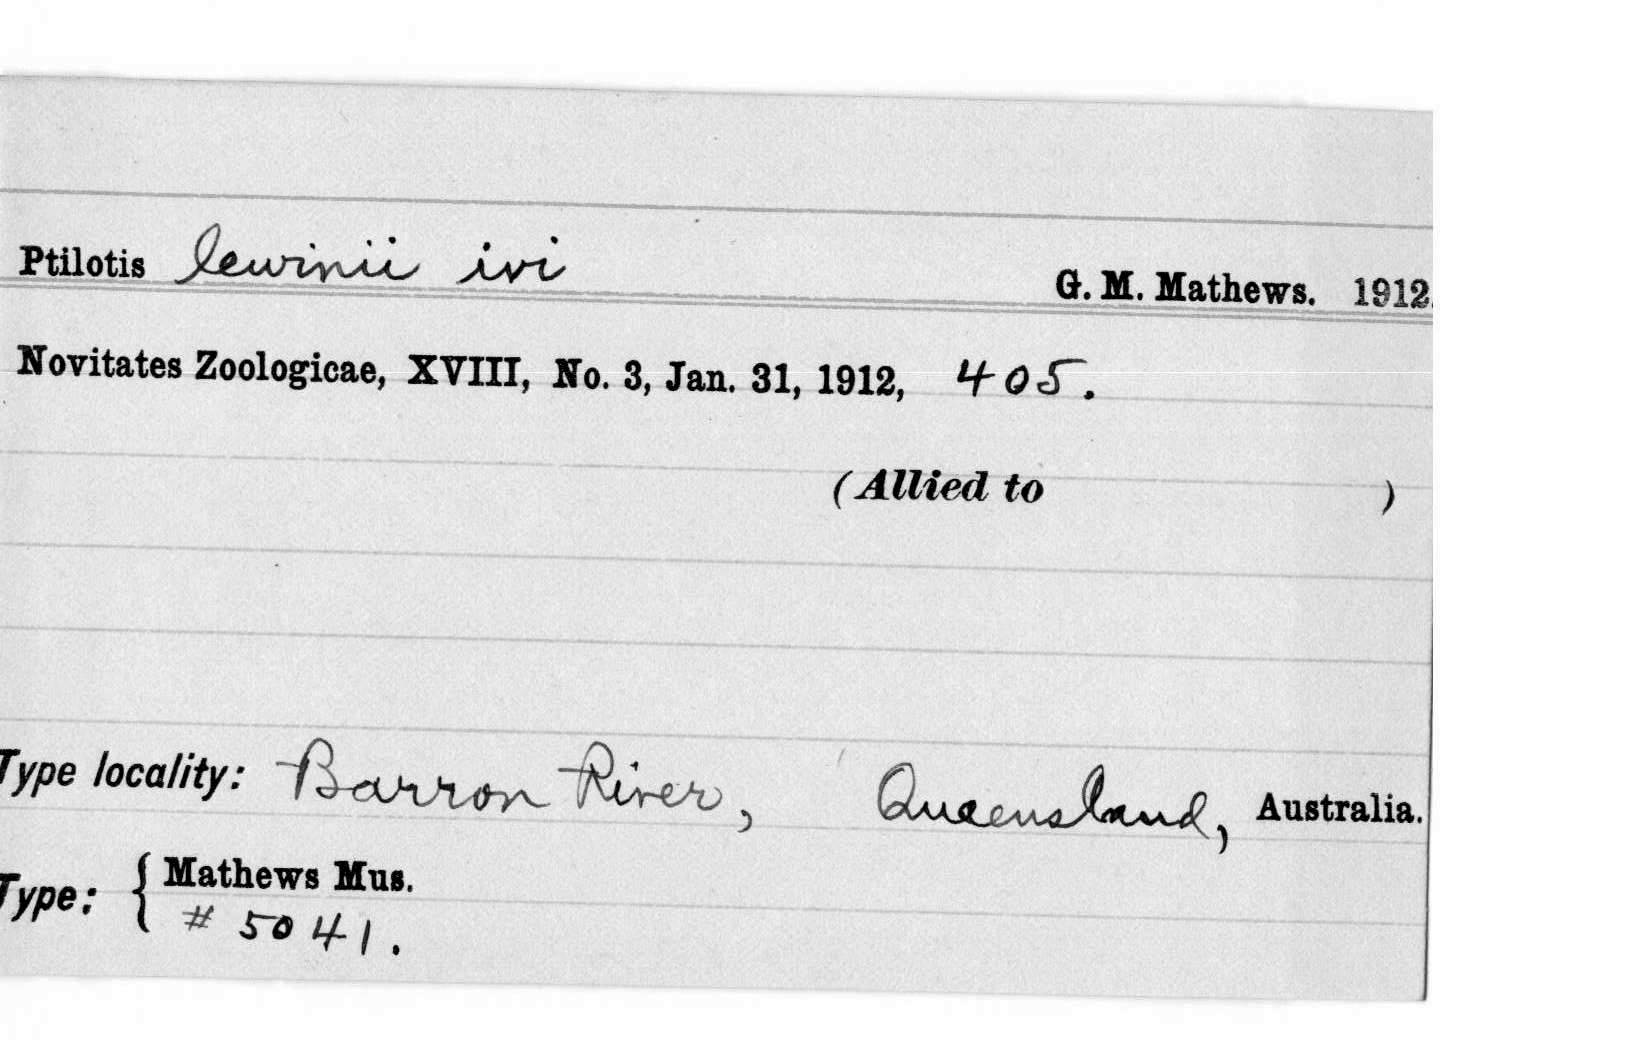 Ptilotis lewinii ivi G. M. Mathews. 1912.
Novitates Zoologicae, XVIII, No. 3, Jan. 31, 1912, 405.
(Allied to )
Type locality: Barron River, Queensland, Australia.
Type: { Mathews Mus.
# 5041.